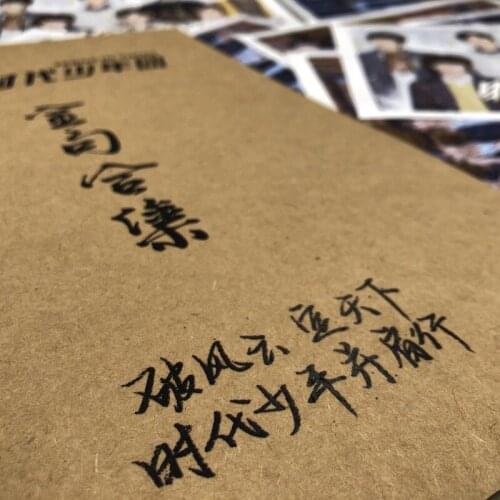 金句合集
破风云 定天下
时代少年并肩行